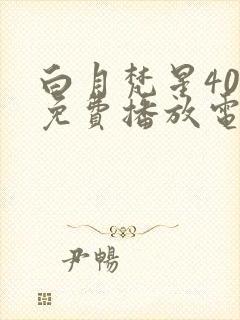 白月梵星40
免费播放電
尹暢